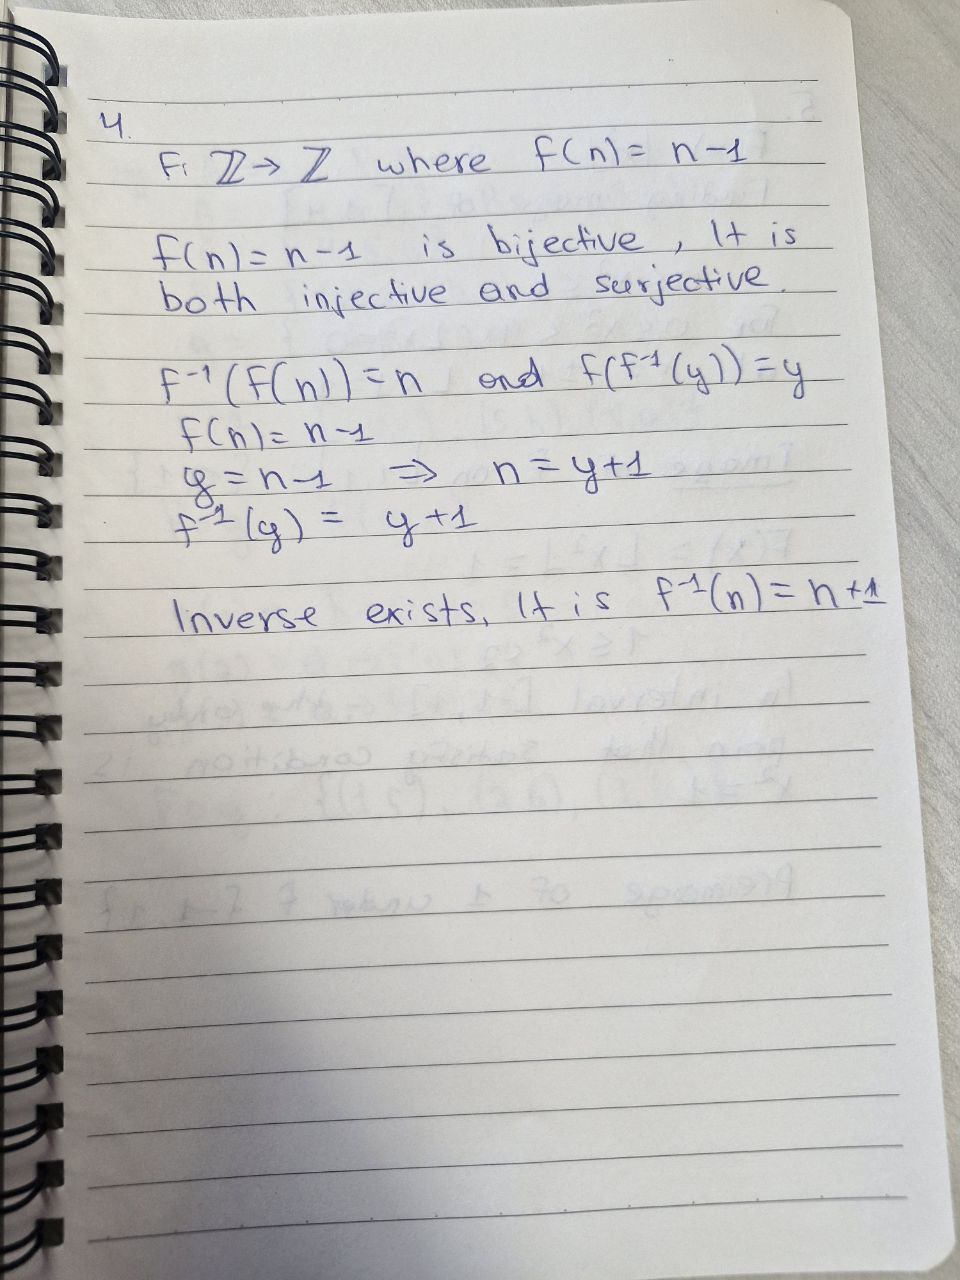 4.
F: ℤ → ℤ where f(n) = n-1
f(n) = n-1 is bijective, It is
both injective and surjective.
f⁻¹(f(n)) = n and f(f⁻¹(y)) = y
f(n) = n-1
y = n-1 ⇒ n = y+1
f⁻¹(y) = y+1
Inverse exists, It is f⁻¹(n) = n+1